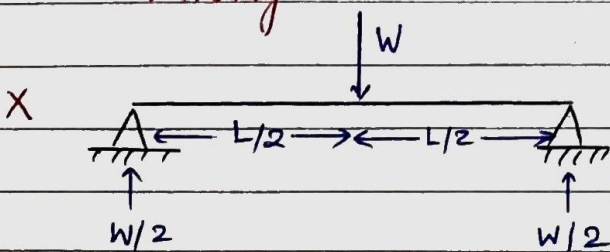 W
X
L/2 L/2
W/2 W/2